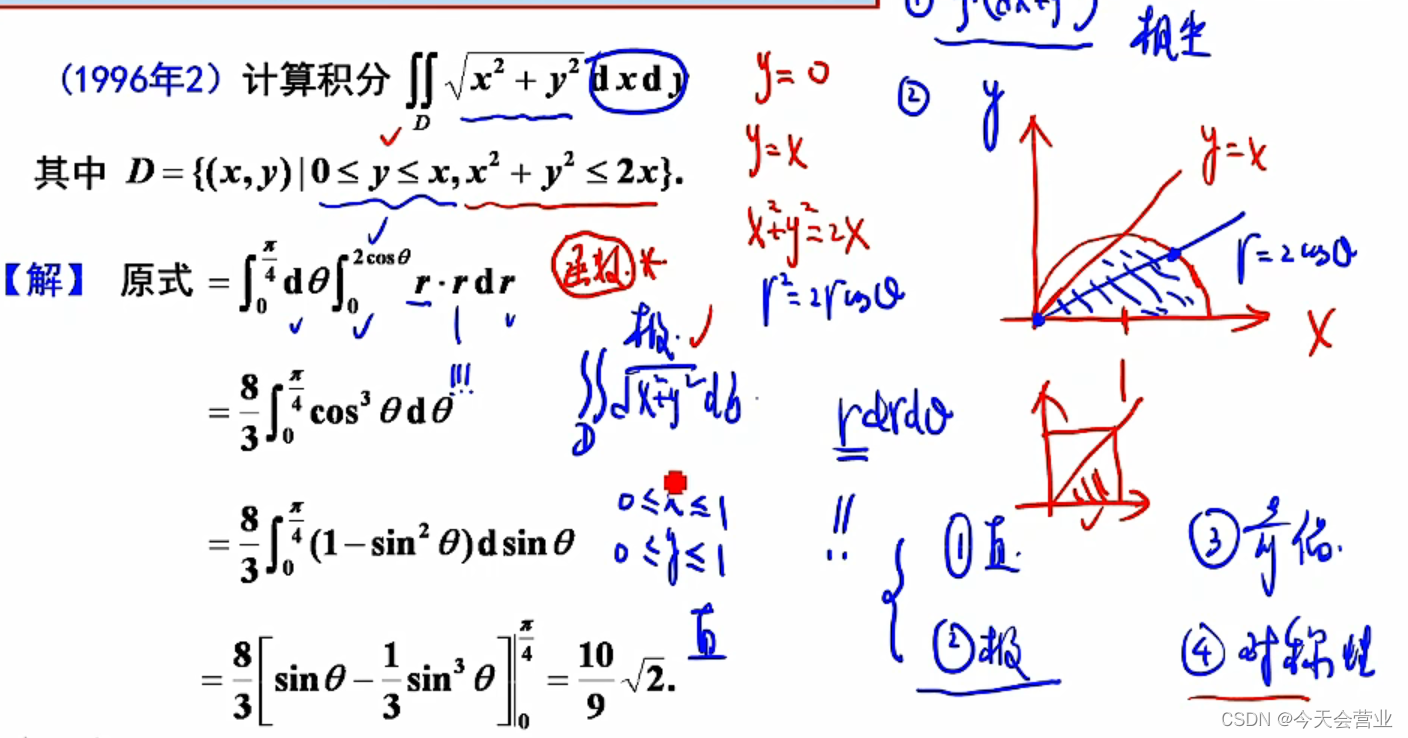 ① f(ax+y)
极坐
(1996年2) 计算积分 ∬_D √(x² + y²) dxdy
其中 D = {(x,y)|0 ≤ y ≤ x, x² + y² ≤ 2x}.
【解】 原式 = ∫_0^{π/4} dθ ∫_0^{2cosθ} r · r dr
= 8/3 ∫_0^{π/4} cos³ θ dθ
= 8/3 ∫_0^{π/4} (1 − sin² θ) d sin θ
= 8/3 [sin θ − 1/3 sin³ θ] |_0^{π/4} = 10/9 √2.
y = 0
y = x
x² + y² = 2x
r² = 2r cosθ
②
y
y = x
r = 2cosθ
x
1
极.
∬_D √(x²+y²) dσ
r dr dθ
!!!
!!
0 ≤ x ≤ 1
0 ≤ y ≤ 1
直
① 直.
② 极
③
④ 对称性
CSDN @今天会营业